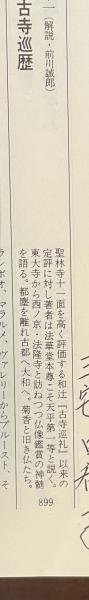 古寺巡歴
一（解説・前川誠郎）
聖林寺十一面を高く評価する和辻『古寺巡礼』以来の
定評に対し著者は法華堂本尊こそ天平第一等と説く。
東大寺から西ノ京・法隆寺と訪ねつつ仏像鑑賞の神髄
を語る。都塵を離れ古都へ大和へ。菊香と旧き仏たち。
899
ランボオ、マラルメ、ヴァレリーからプルースト、そ